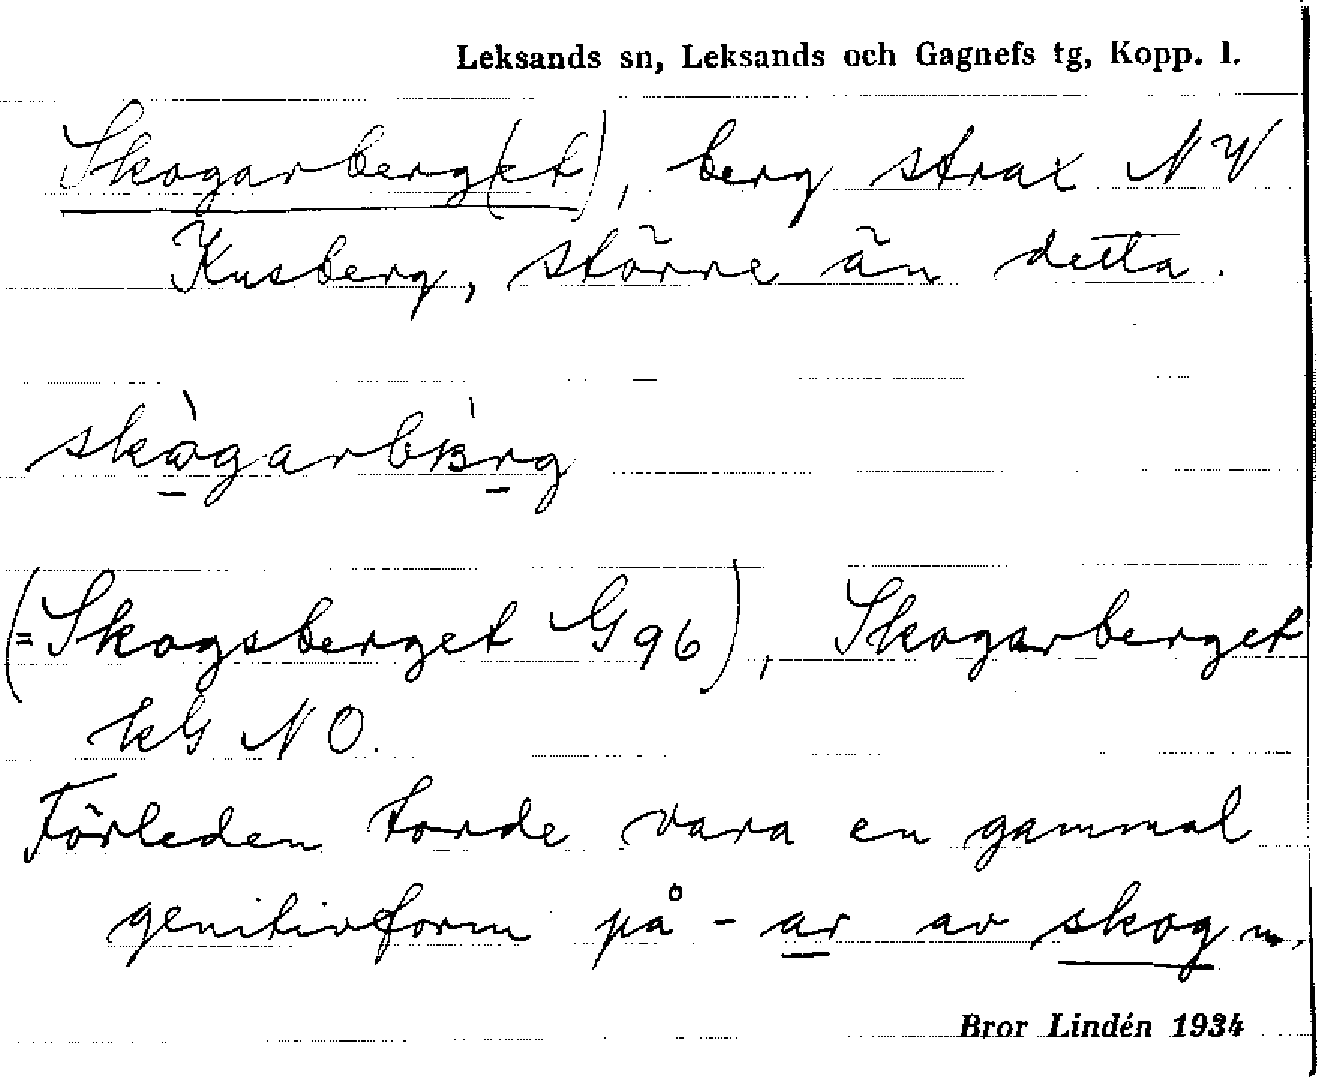 Leksands sn, Leksands och Gagnefs tg, Kopp. l.
Skogarberg(et), berg strax NV
Kusberg, större än detta.
(=Skogsberget G96), Skogarberget
kG NO.
Förleden torde vara en gammal
genitivform på -ar av skog m.
Bror Lindén 1934